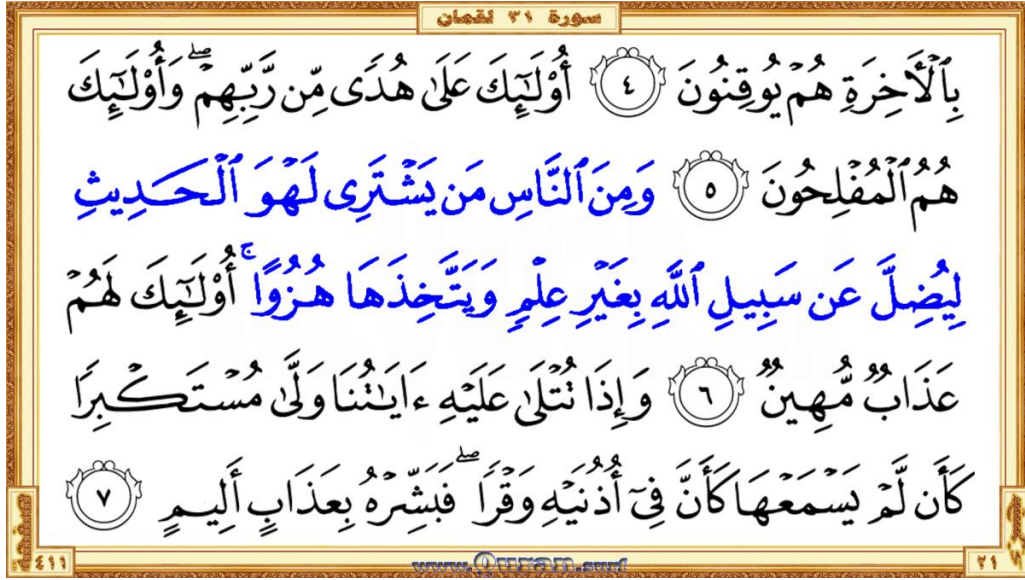 سورة ٣١ لقمان
بِٱلْأَخِرَةِ هُمْ يُوقِنُونَ ٤ أُوْلَٰٓئِكَ عَلَىٰ هُدًى مِّن رَّبِّهِمْ ۖ وَأُوْلَٰٓئِكَ
هُمُ ٱلْمُفْلِحُونَ ٥ وَمِنَ ٱلنَّاسِ مَن يَشْتَرِى لَهْوَ ٱلْحَدِيثِ
لِيُضِلَّ عَن سَبِيلِ ٱللَّهِ بِغَيْرِ عِلْمٍ وَيَتَّخِذَهَا هُزُوًا ۚ أُوْلَٰٓئِكَ لَهُمْ
عَذَابٌ مُّهِينٌ ٦ وَإِذَا تُتْلَىٰ عَلَيْهِ ءَايَٰتُنَا وَلَّىٰ مُسْتَكْبِرًا
كَأَن لَّمْ يَسْمَعْهَا كَأَنَّ فِىٓ أُذُنَيْهِ وَقْرًا ۖ فَبَشِّرْهُ بِعَذَابٍ أَلِيمٍ ٧
٢١
www.Quran.surf
الصفحة ٤١١